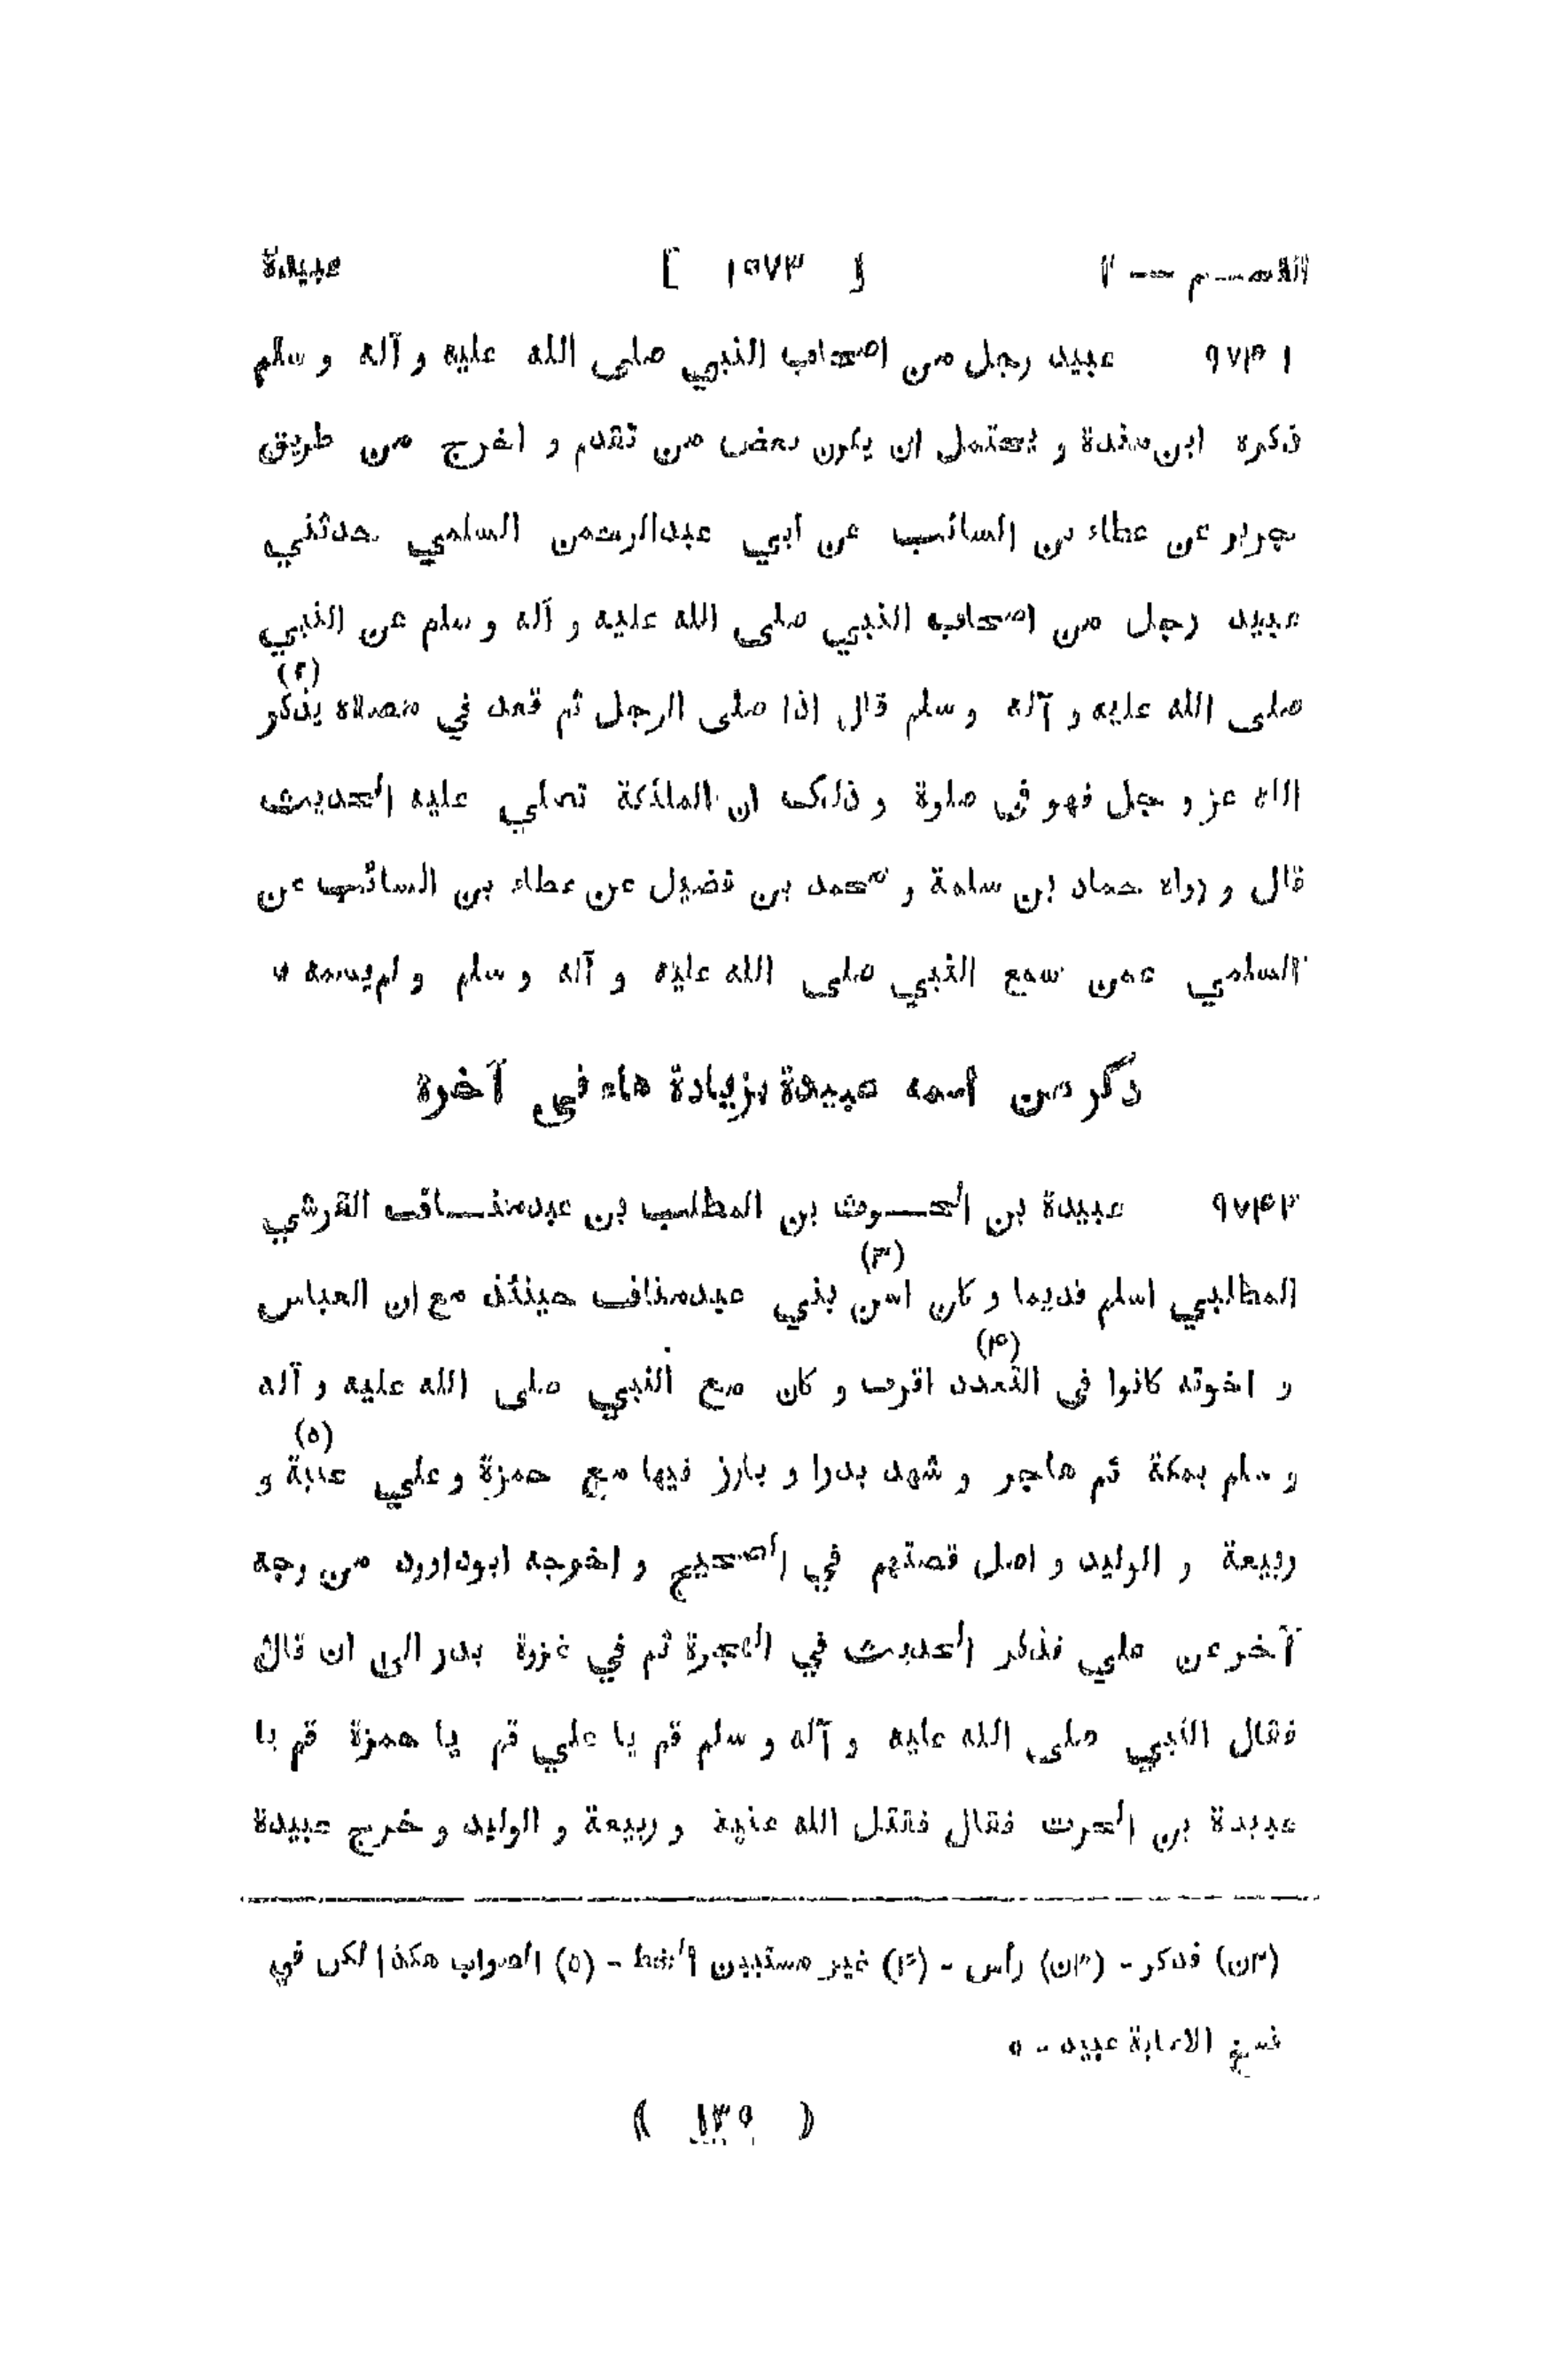 القسم — ٢ [ ١٠٧٣ ] عبيدة
٩٧٤١ عبيد رجل من اصحاب النبي صلى الله عليه و آله و سلم
ذكره ابن مندة و يحتمل ان يكون بعض من تقدم و اخرج من طريق
جرير عن عطاء بن السائب عن ابي عبدالرحمن السلمي حدثني
عبيد رجل من اصحاب النبي صلى الله عليه و آله و سلم عن النبي
صلى الله عليه و آله و سلم قال اذا صلى الرجل ثم قعد في مصلاه يذكر (٢)
الله عز و جل فهو في صلوة و ذلك ان الملئكة تصلي عليه الحديث
قال و رواه حماد بن سلمة و محمد بن فضيل عن عطاء بن السائب عن
السلمي عمن سمع النبي صلى الله عليه و آله و سلم و لم يسمه *
ذكر من اسمه عبيدة بزيادة هاء في آخرة
٩٧٤٢ عبيدة بن الحـــرث بن المطلب بن عبدمنـــاف القرشي
المطلبي اسلم قديما و كان اسن (٣) بني عبدمناف حينئذ مع ان العباس
و اخوته كانوا في التعدد (٤) اقرب و كان مع النبي صلى الله عليه و آله
و سلم بمكة ثم هاجر و شهد بدرا و بارز فيها مع حمزة و علي عتبة (٥) و
ربيعة و الوليد و اصل قصتهم في الصحيح و اخرجه ابوداود من وجه
آخر عن علي فذكر الحديث في الهجرة ثم في غزوة بدر الى ان قال
فقال النبي صلى الله عليه و آله و سلم قم يا علي قم يا حمزة قم يا
عبيدة بن الحرث فقال فقتل الله عتبة و ربيعة و الوليد و خرج عبيدة
(٢ن) فذكر - (٣ن) رأس - (٤) غير مستبين الخط - (٥) الصواب هكذا لكن في
نسخ الاصابة عبيد -
( ١٣٩ )